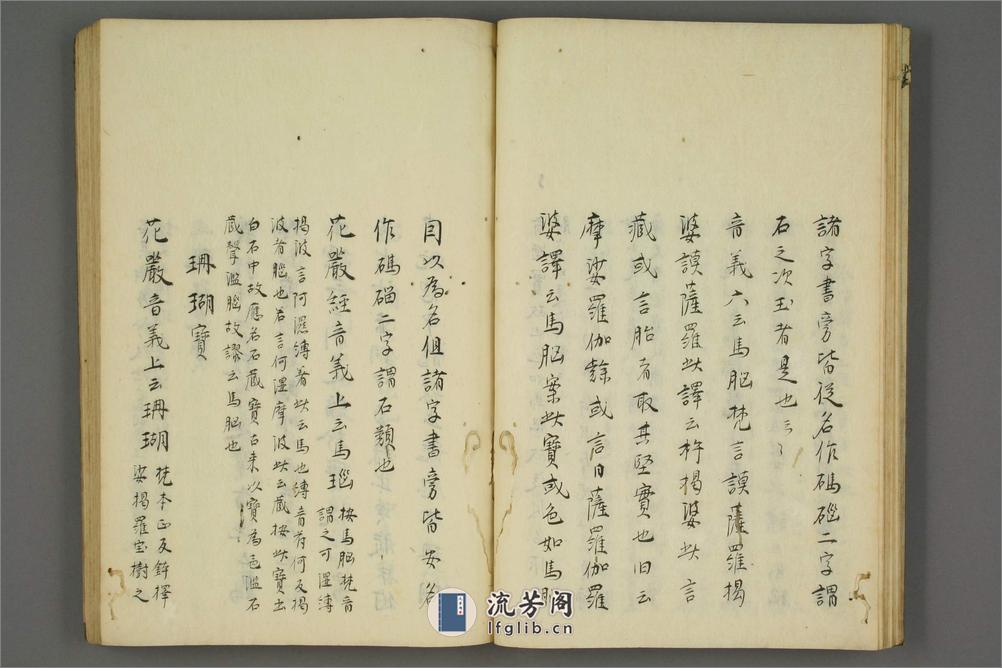 諸字書旁皆從名作碼碯二字謂
石之次玉者是也云々
音義六云馬脳梵言謨薩羅揭
婆謨薩羅此譯云杵揭婆此言
藏或言胎者取其堅實也旧云
摩娑羅伽隸或言目薩羅伽羅
婆譯云馬脳案此寶或色如馬脳
目以為名但諸字書旁皆安名
作碼碯二字謂石類也
花嚴經音義上云馬瑙
按馬脳梵音
謂之可溼縛
揭波言阿濕縛者此云馬也縛音苻何反揭
波者脳也若言何溼摩波此云藏按此寶出
白石中故應名石藏寶古来以寶為色濫石
藏聲濫脳故謬云馬脳也
珊瑚寶
花嚴音義上云珊瑚
梵本正反鉾擇
娑揭羅宝樹之
流芳阁
lfglib.cn